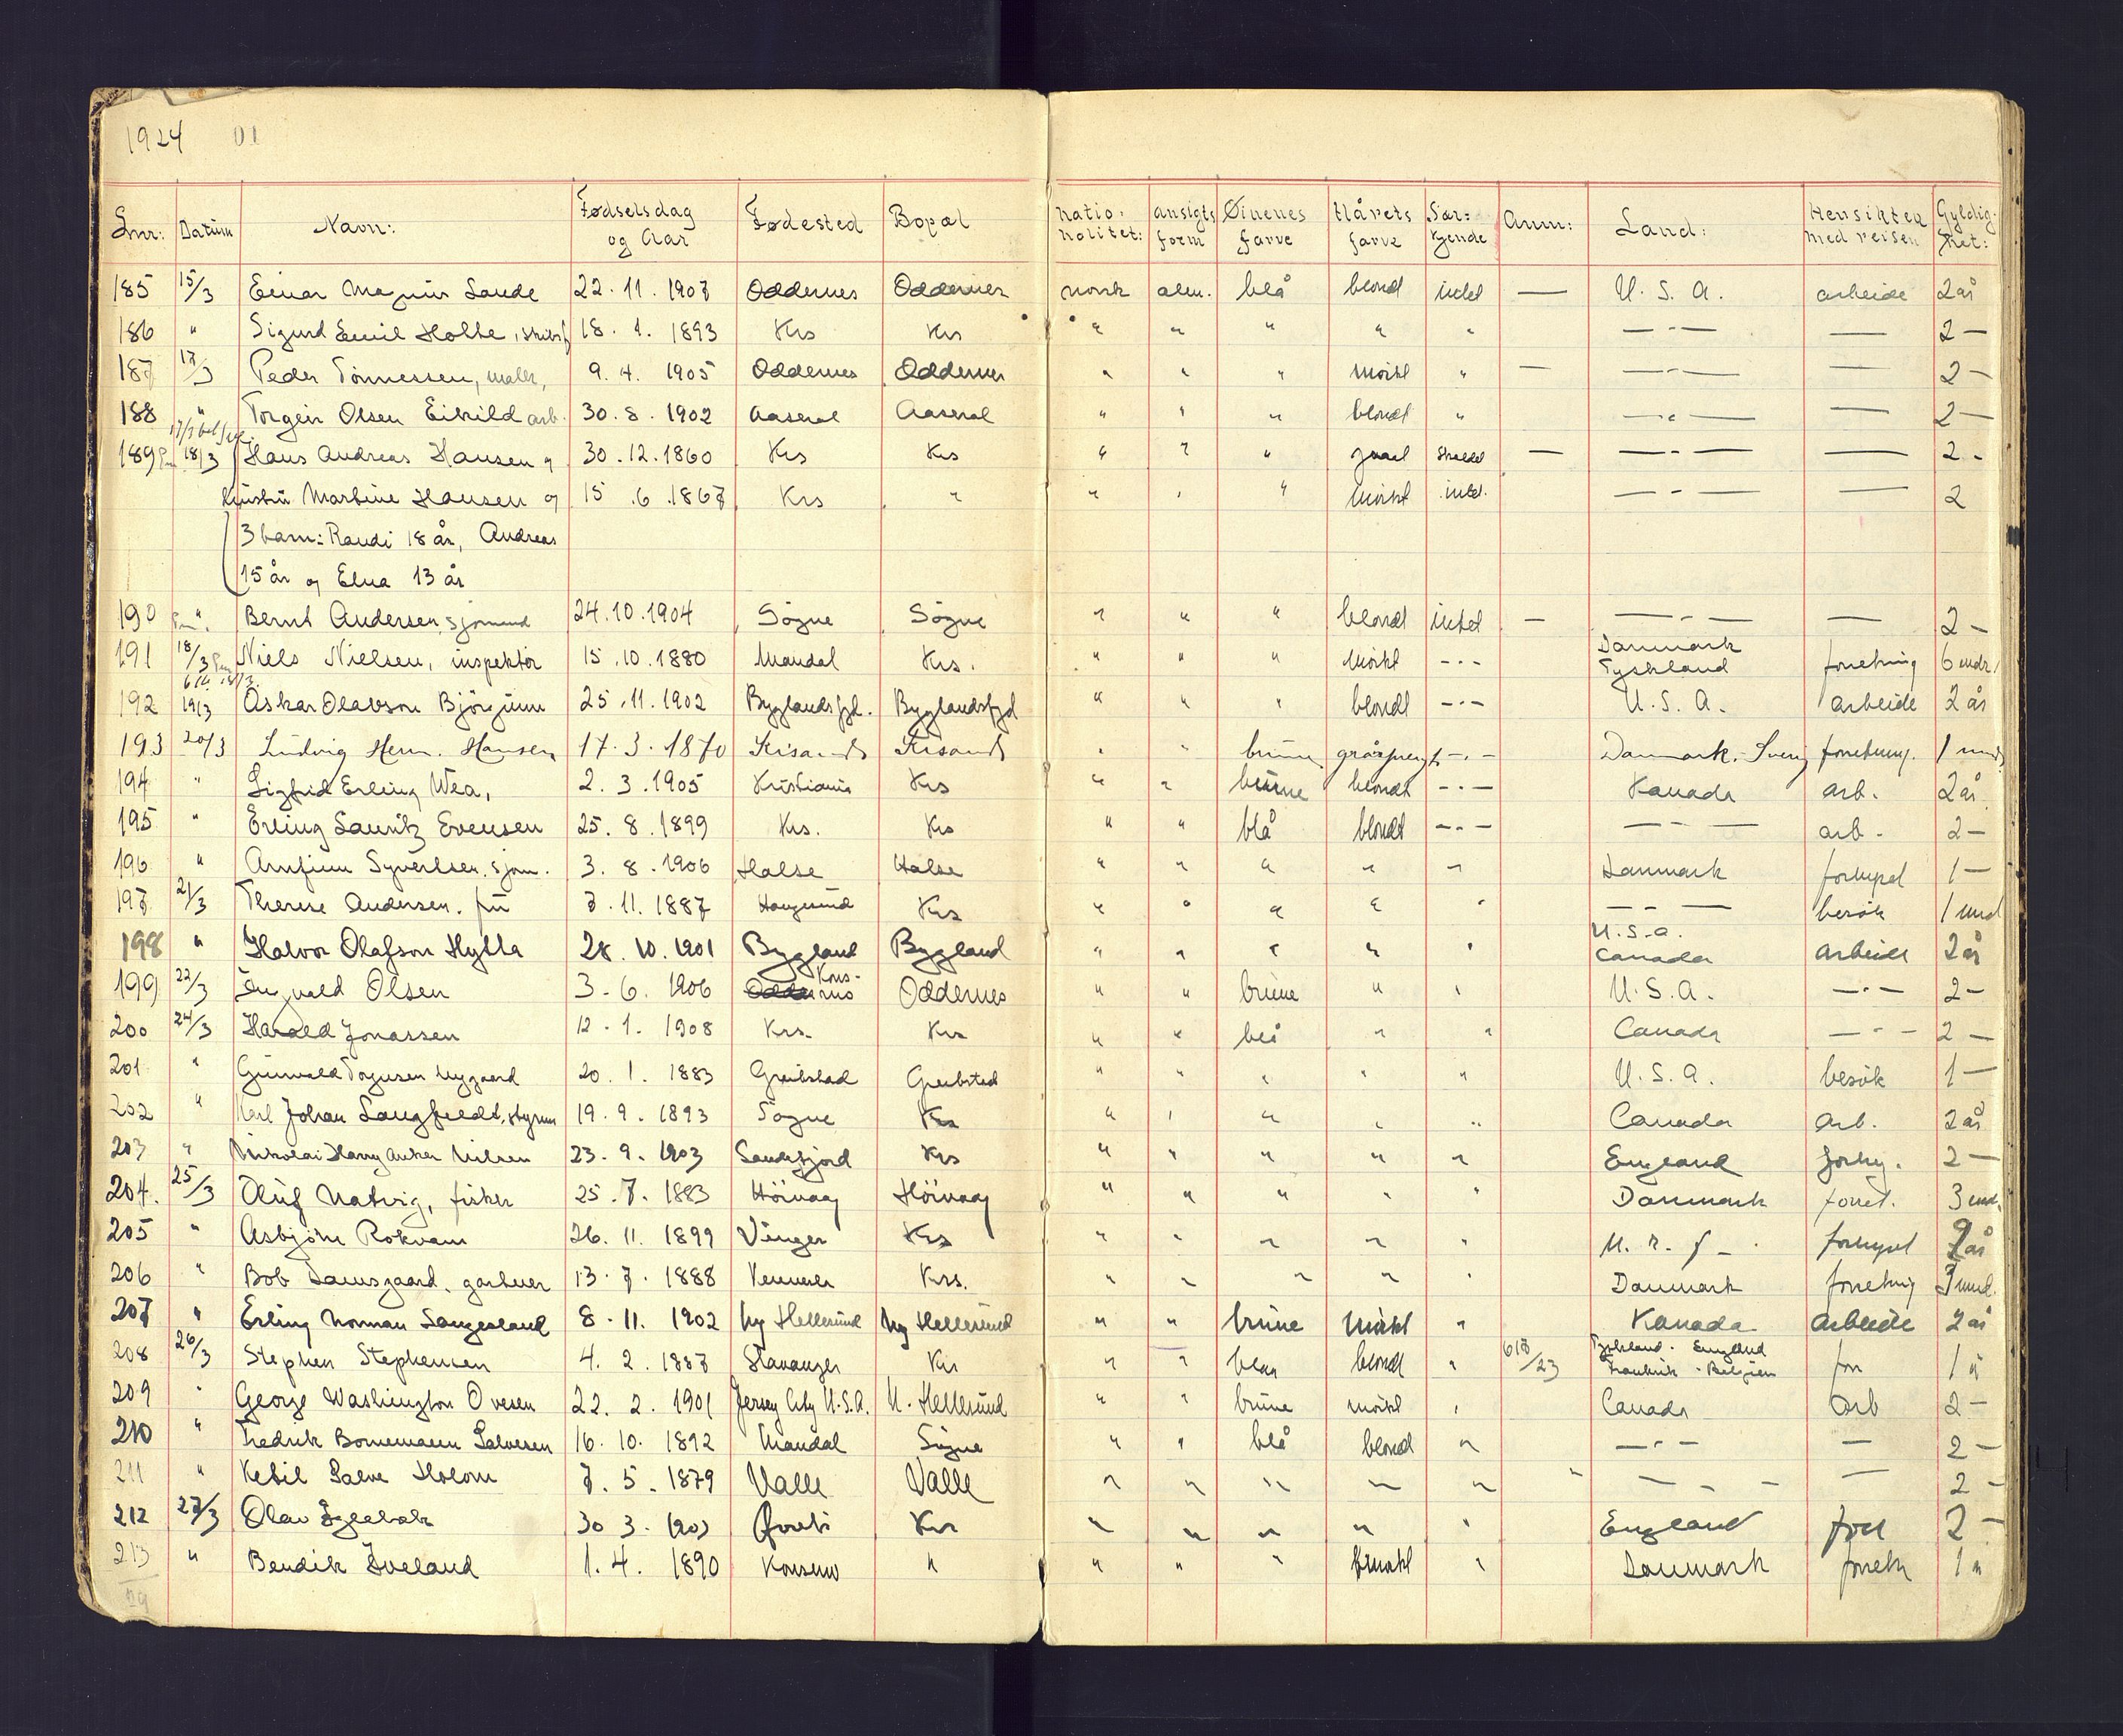 1924
Lnr: Datum Navn: Fødselsdag og Aar Fødested Bopæl Natio: nalitet: ansigts form Øinenes farve Hårets farve Sær: kjende Anm: Land: Hensikten med reisen Gyldig: het:
185 15/3 Einar Magnus Saude 22.11.1907 Oddernes Oddernes norsk alm. blå blondt intet — U.S.A. arbeide 2 år
186 " Sigurd Emil Holte, 18.1.1893 Krs Krs " " " " " —"— — 2 —
187 17/3 Peder Tønnessen, maler, 9.4.1905 Oddernes Oddernes " " " mørkt " — —"— — 2 —
188 " Torgeir Olsen Eikild arb. 30.8.1902 Aaseral Aaseral " " " blondt " —"— — 2 —
189 18/3 Hans Andreas Hansen og 30.12.1860 Krs Krs " " " graat skaldet — —"— — 2 -
hustru Martine Hansen og 15.6.1867 Krs " " " " mørkt intet. —"— — 2
3 barn: Randi 18 år, Andreas
15 år og Elna 13 år
190 " Bernt Andersen, sjømand 24.10.1904 Søgne Søgne " " " blondt intet — —"— — 2 —
191 18/3 Niels Nielsen, inspektør 15.10.1880 Mandal Krs. " " " mørkt -"- Danmark Tyskland forretning 6 mdr.
192 19/3 Askar Olavson Bjørgum 25.11.1902 Byglandsfjd. Byglandsfjd " " " blondt -"- U.S.A. arbeide 2 år
193 20/3 Ludvig Herm. Hansen 17.3.1870 Krisands Krisand " " brune gråsprengt -"- Danmark. Sverig forretning. 1 mnd.
194 " Sigfrid Erling Wea, 2.3.1905 Kristiania Krs " " brune blondt -"- Kanada arb. 2 år.
195 " Erling Lauritz Evensen 25.8.1899 Krs. Krs " " blå blondt -"- —"— arb. 2 —
196 " Arnfinn Syvertsen. sjøm. 3.8.1906 Halse Halse " " " " " Danmark forhyret 1 —
197 21/3 Therese Andersen. fru 7.11.1887 Haugesund Krs " " " " " —"— besøk 1 mnd
198 " Halvor Olafson Hylla 28.10.1901 Bygland Bygland " " " " " U.S.A. Canada arbeide 2 år
199 22/3 Ingvald Olsen 3.6.1906 Krs. Oddernes Oddernes " " brune " " U.S.A. -"- 2 -
200 24/3 Harald Jonassen 12.1.1908 Krs. Krs " " blå " " Canada -"- 2 —
201 " Gunvald Torjusen Nygaard 20.1.1883 Greibstad Greibsted " " " " " U.S.A. besøk 1 —
202 " Karl Johan Langfeldt, styrm 19.9.1893 Søgne Krs " " " " " Canada arb. 2 år
203 " Nikolai Harry Anker Nilsen 23.9.1903 Sandefjord Krs " " " " " England forhy. 2 —
204. 25/3 Oluf Natvig, fisker 25.7.1883 Høivaag Høivaag " " " " " Danmark forret. 3 mnd.
205 " Asbjørn Rokvam 26.11.1899 Vinger Krs " " " " " forhyret år
206 " Bob Damsgaard, gartner 13.7.1888 Krs. " " " " " Danmark forretning 3 mnd.
207 " Erling Norman Langesland 8.11.1902 Ny Hellesund Ny Hellesund " " brune mørkt " Kanada arbeide 2 år
208 26/3 Stephen Stephensen 4.2.1887 Stavanger Krs " " blaa blondt " 618/23 Tyskland. England Frankrik - Belgien for 1 "
209 " George Washington Ovesen 22.2.1901 Jersey City U.S.A. N. Hellesund " " brune mørkt " Canada arb 2 -
210 " Fredrik Bornemann Salvesen 16.10.1892 Mandal Søgne " " blå blond " -"- — 2 -
211 " Ketil Salve Holom 7.5.1879 Valle Valle " " " " " " -"- — 2 -
212 27/3 Olav 30.3.1903 Krs " " " " " England forr 2 -
213 " Bendik Iveland 1.4.1890 " " " " " Danmark forretn 1 "